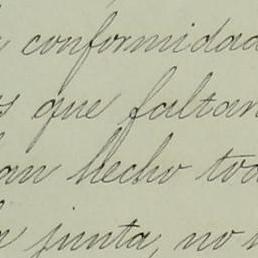 conformidad
s que faltan
han hecho tod
junta, no